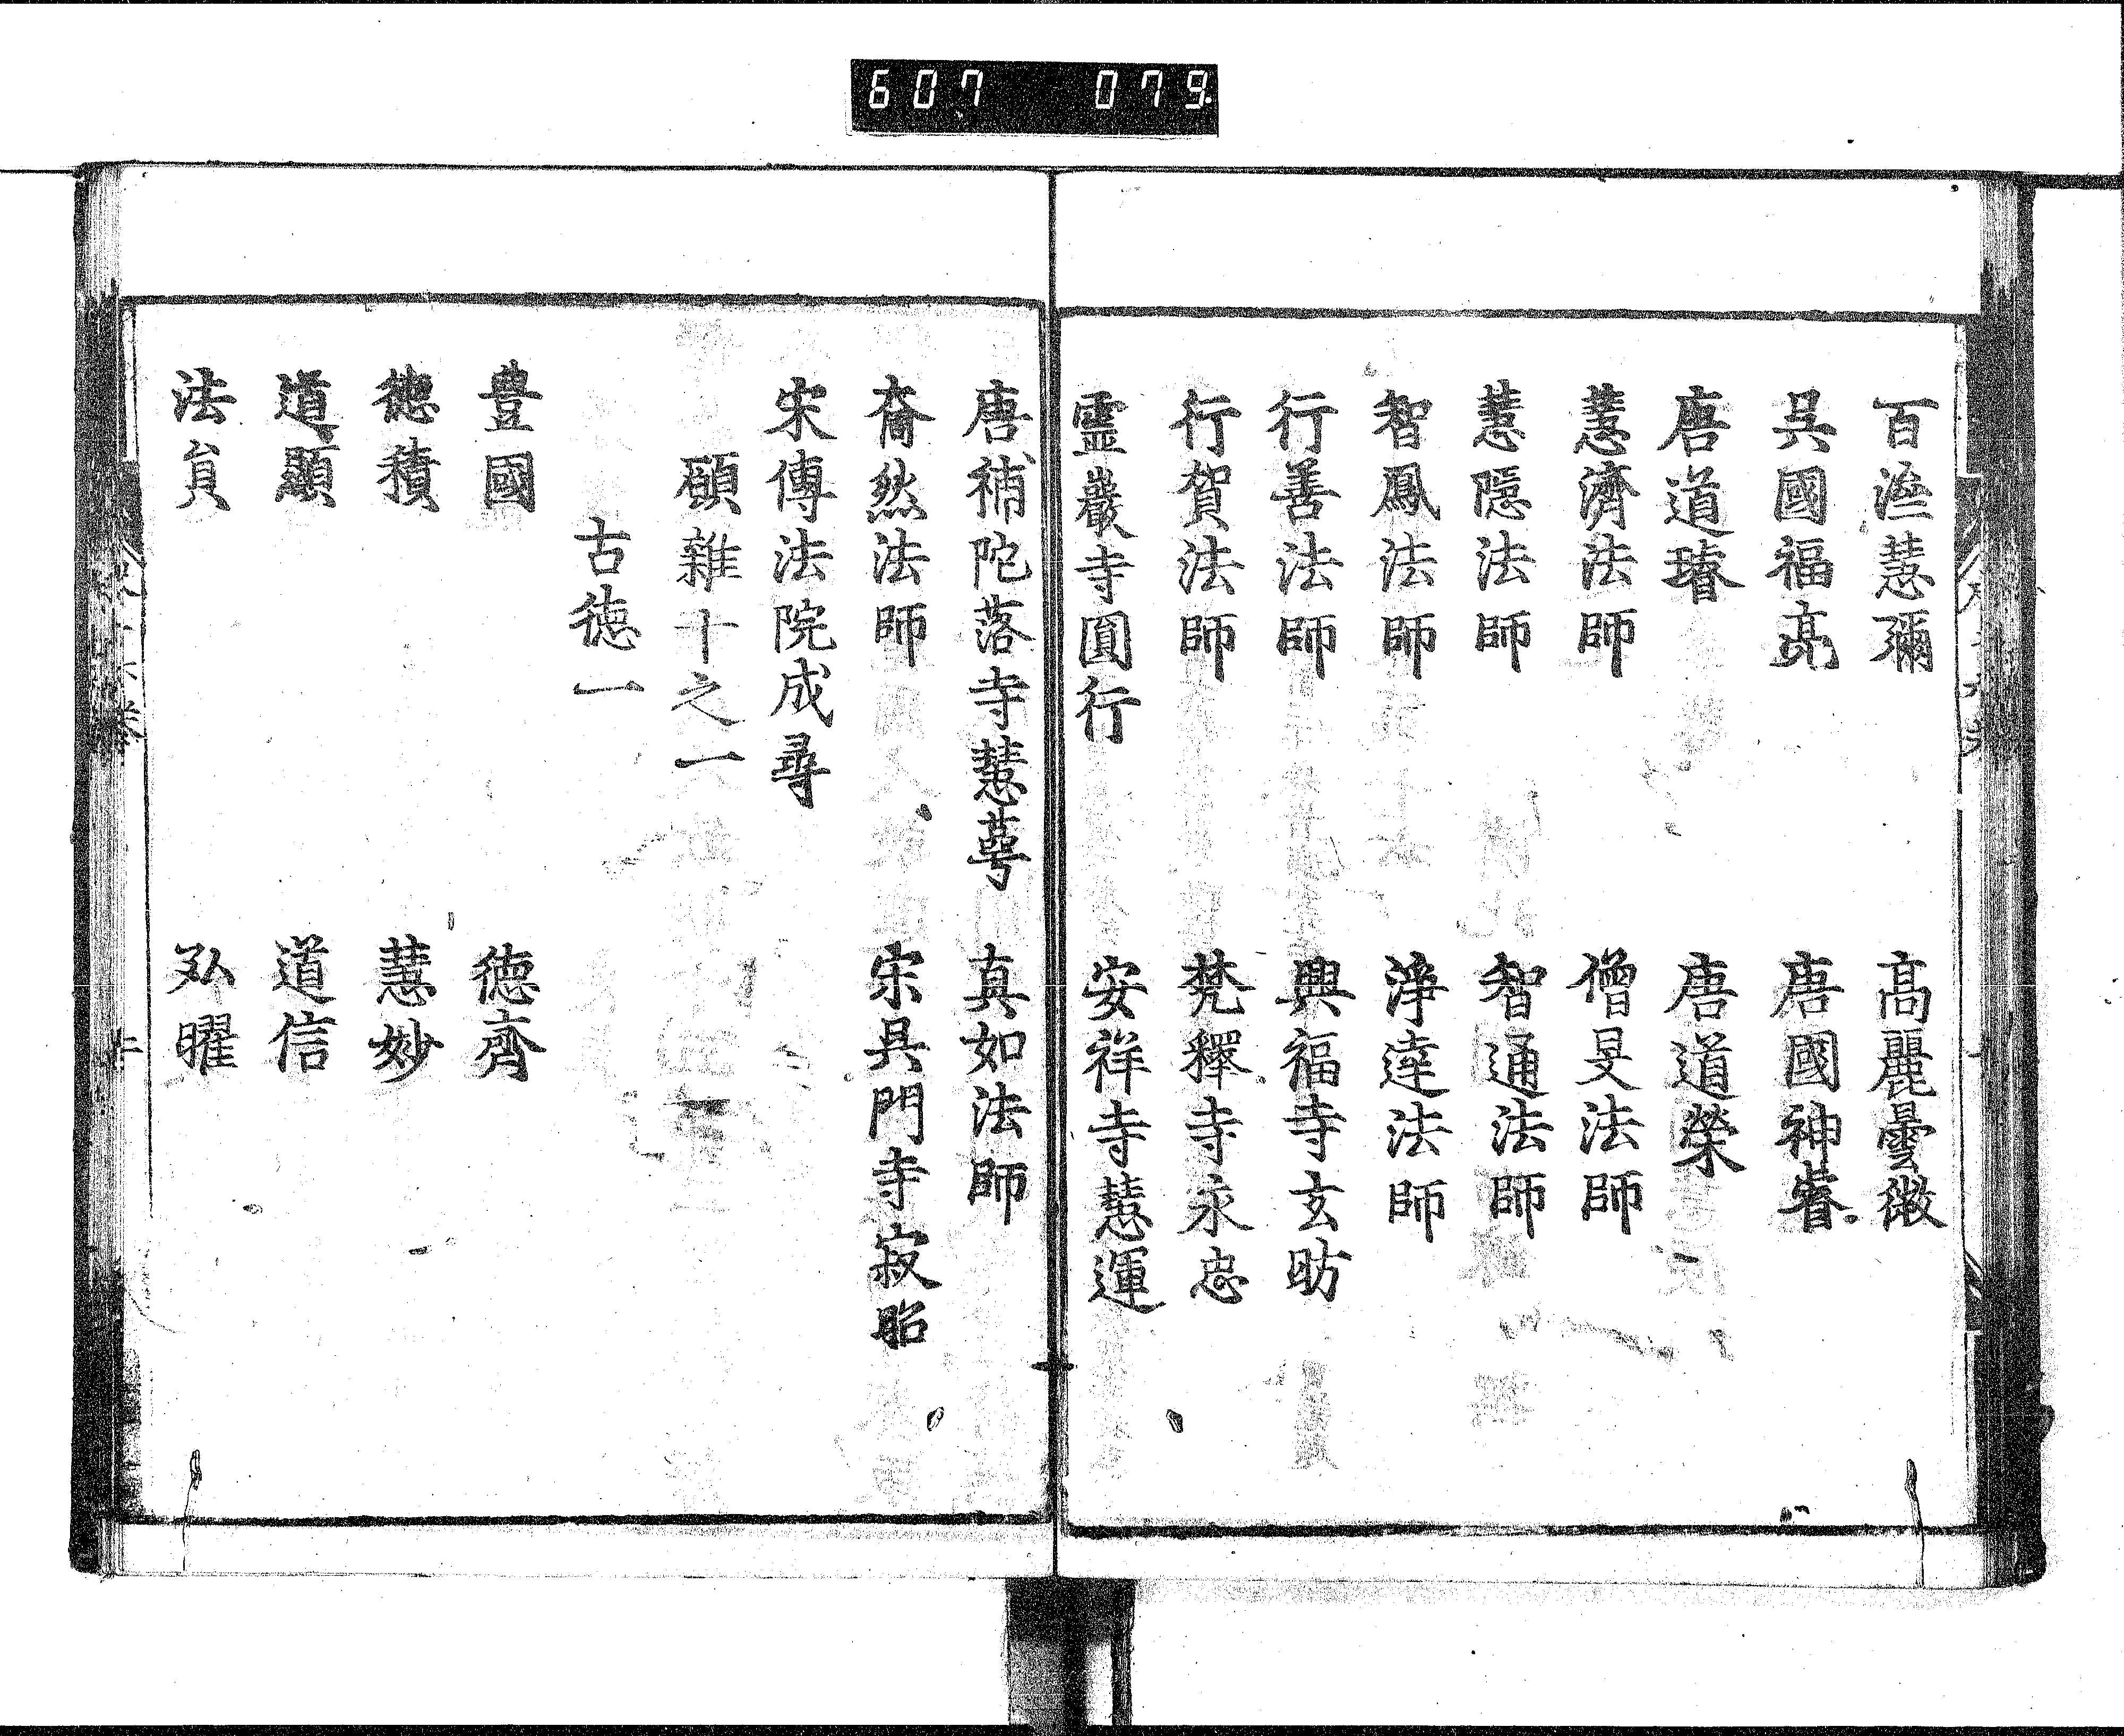 607 079
百濟慧彌 高麗曇徴
吳國福亮 唐國神睿
唐道璿 唐道榮
慧濟法師 僧旻法師
慧隱法師 智通法師
智鳳法師 淨達法師
行善法師 興福寺玄昉
行賀法師 梵釋寺永忠
靈巖寺圓行 安祥寺慧運
唐補陀落寺慧萼 真如法師
奝然法師 宋吳門寺寂昭
宋傳法院成尋
願雜十之一
古德一
豊國 德齊
德積 慧妙
道顯 道信
法員 弘曜